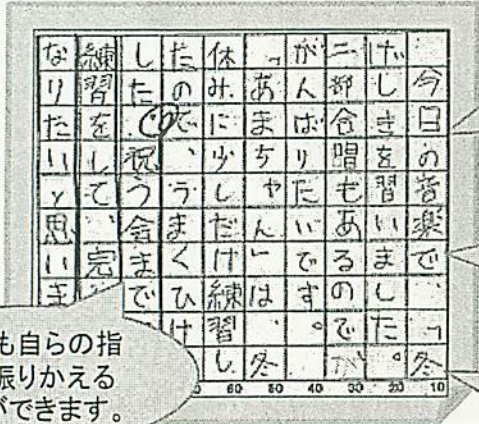 今日の音楽で、「冬
げしきを習いました。
二部合唱もあるのでが
がんばりたいです。
「あまちゃん」は、冬
休みに少しだけ練習し
たので、うまくひけ
した。祝う会まで
練習をして、完
なりたいと思いま
も自らの指
振りかえる
ができます。
60 50 40 30 20 10